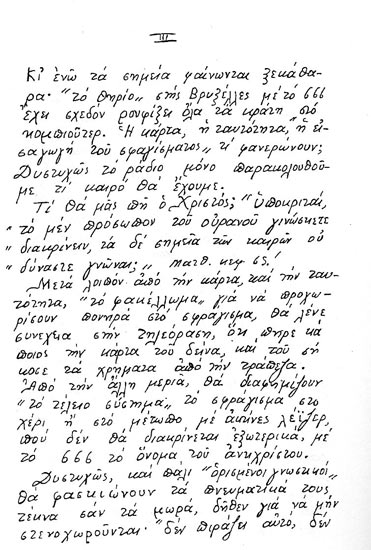 III
Κι' ἐνῶ τά σημεῖα φαίνωνται ξεκάθα-
ρα· "τό θηρίο" στής Βρυξέλλες μέ τό 666
ἔχει σχεδόν ρουφίξει ὅλα τά κράτη στό
κομπιοῦτερ. Ἡ κάρτα, ἡ ταυτότητα, ἡ εἰ-
σαγωγή τοῦ σφραγίσματος τί φανερώνουν;
Δυστυχῶς τό ράδιο μόνο παρακολουθοῦ-
με τί καιρό θά ἔχουμε.
Τί θά μᾶς πῆ ὁ Χριστός; "Ὑποκριταί,
"τό μέν πρόσωπον τοῦ οὐρανοῦ γινώσκετε
"διακρίνειν, τά δέ σημεῖα τῶν καιρῶν οὐ
"δύναστε γνῶναι; " Ματθ. κεφ
Μετά λοιπόν ἀπό τήν κάρτα, καί τήν ταυ-
τότητα, "τό φακέλλωμα" γιά νά προχω-
ρίσουν πονηρά στό σφράγισμα, θά λένε
συνεχεια στήν τηλεόραση, ὅτι πῆρε κά
ποιος τήν κάρτα τοῦ δεῖνα, καί τοῦ σή
κοσε τά χρήματα ἀπό τήν τράπεζα.
Ἀπό τήν ἄλλη μεριά, θά διαφημίζουν
"τό τέλειο σύστημα" τό σφράγισμα στό
χέρι ἤ στό μέτωπο μέ ἀκτίνες λέϊζερ,
πού δέν θά διακρίνεται ἐξωτερικά, μέ
τό 666 τό ὄνομα τοῦ ἀντιχρίστου.
Δυστυχῶς, καί πάλι "ὁρισμένοι γνωστικοί"
θά φασκιώνουν τά πνευματικά τους
τέκνα σάν τά μωρά, δῆθεν γιά νά μήν
στενοχωροῦνται· "δέν πιράζει αὐτό, δέν